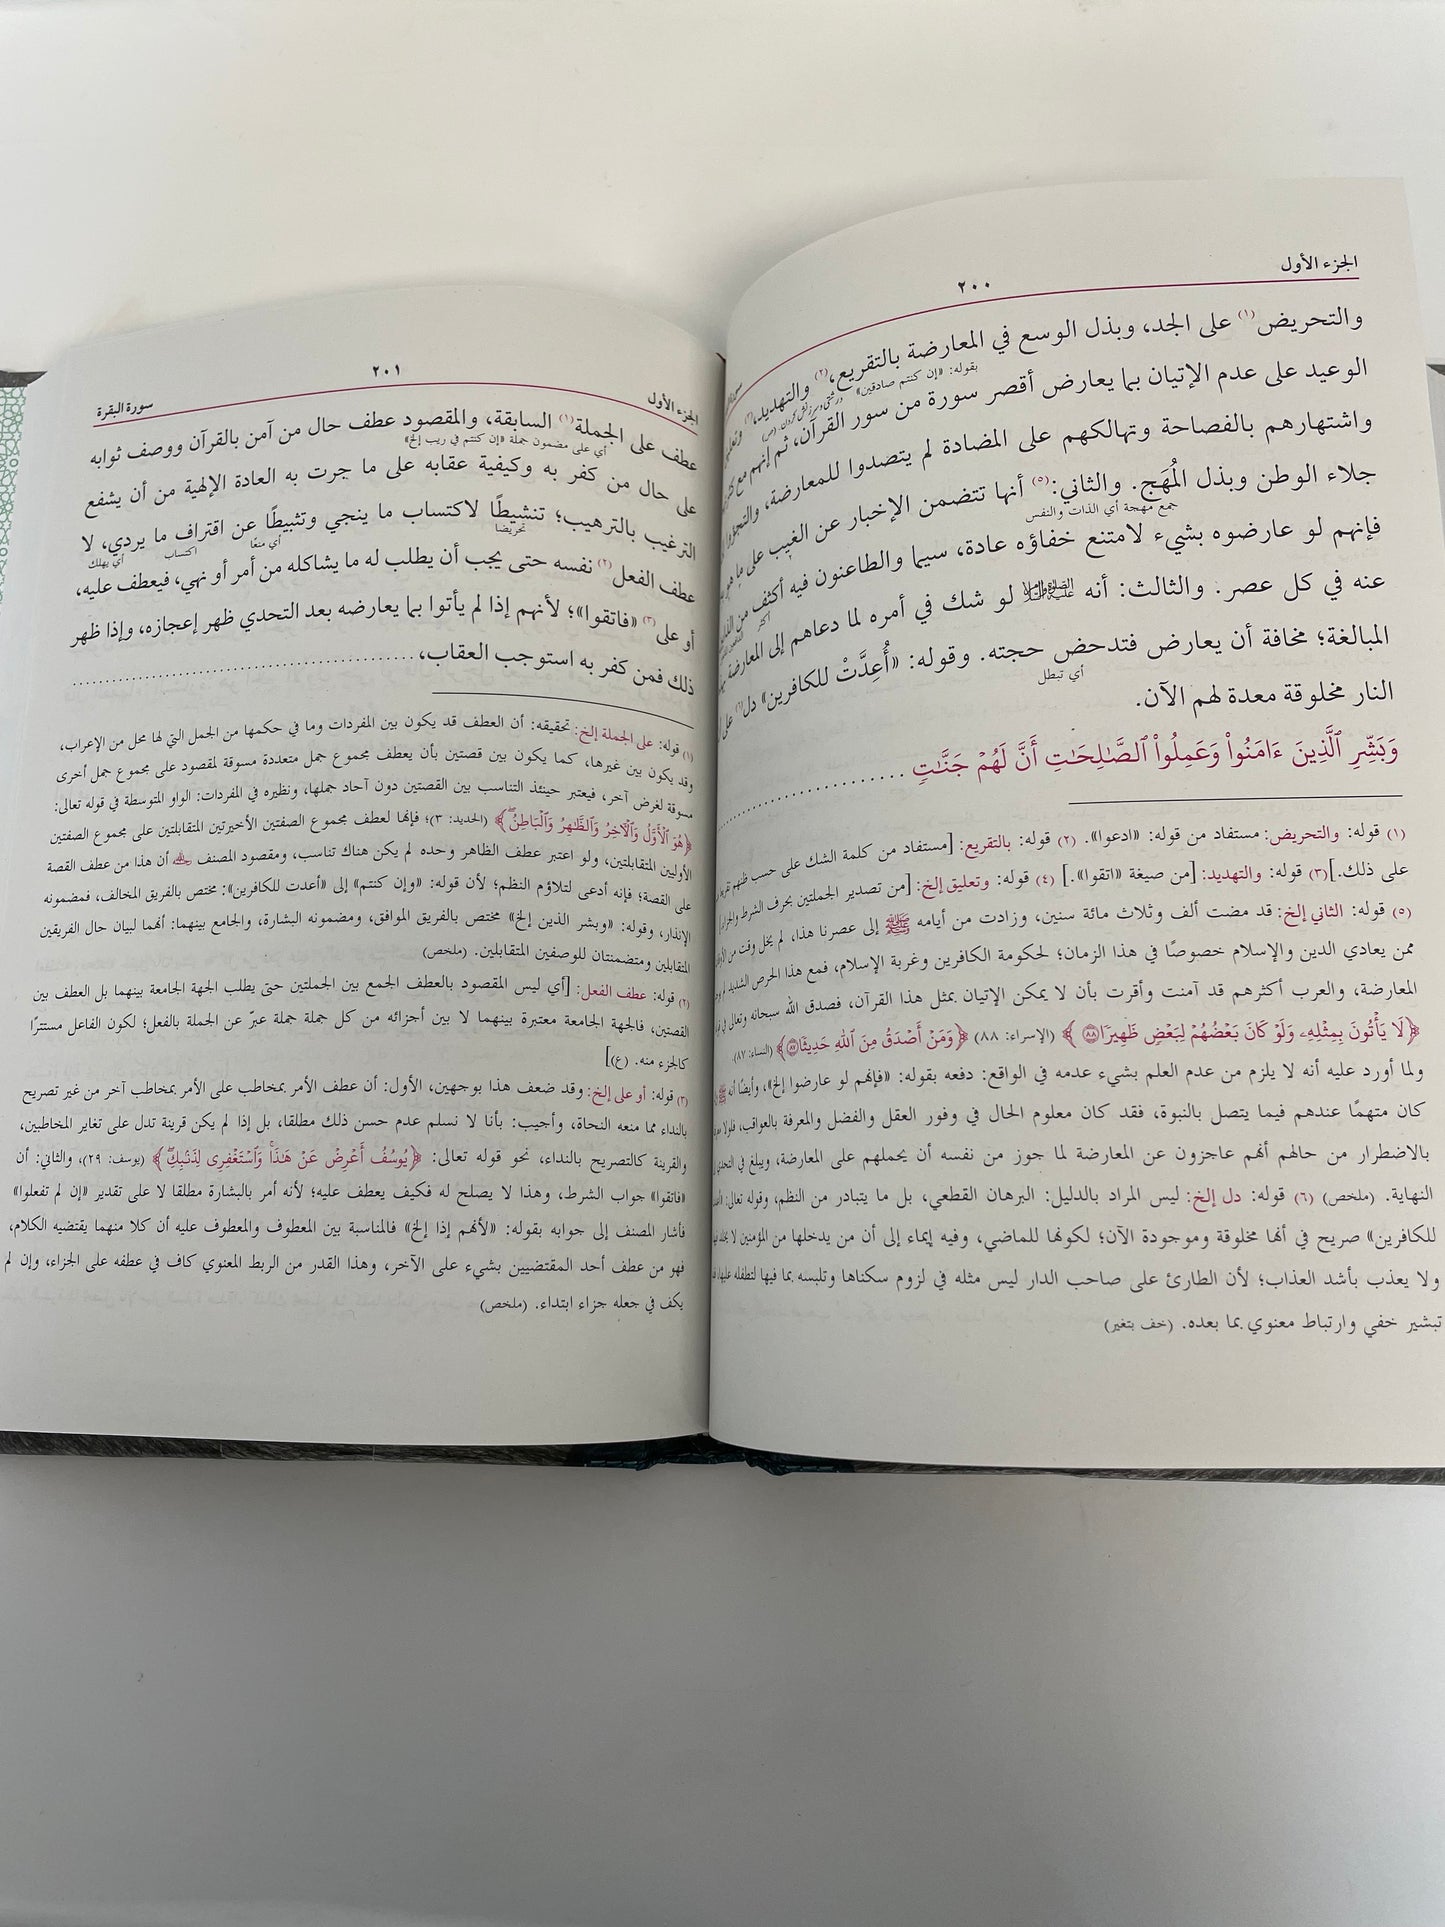 الجزء الأول
٢٠٠
والتحريض(١) على الجد، وبذل الوسع في المعارضة بالتقريع،(٢) والتهديد،(٣)
بقوله: «إن كنتم صادقين»
الوعيد على عدم الإتيان بما يعارض أقصر سورة من سور القرآن، ثم إنهم مع
واشتهارهم بالفصاحة وتهالكهم على المضادة لم يتصدوا للمعارضة، والتجؤوا
جلاء الوطن وبذل المُهَج. والثاني:(٥) أنها تتضمن الإخبار عن الغيب على ما هو
جمع مهجة أي الذات والنفس
فإنهم لو عارضوه بشيء لامتنع خفاؤه عادة، سيما والطاعنون فيه أكثف من
أكثر
عنه في كل عصر. والثالث: أنه لو شك في أمره لما دعاهم إلى المعارضة
المبالغة؛ مخافة أن يعارض فتدحض حجته. وقوله: «أُعِدَّتْ للكافرين» دل(٦) على
أي تبطل
النار مخلوقة معدة لهم الآن.
وَبَشِّرِ ٱلَّذِينَ ءَامَنُوا۟ وَعَمِلُوا۟ ٱلصَّٰلِحَٰتِ أَنَّ لَهُمْ جَنَّٰتٍ ...............
(١) قوله: والتحريض: مستفاد من قوله: «ادعوا». (٢) قوله: بالتقريع: [مستفاد من كلمة الشك على حسب ظنهم
على ذلك.] (٣) قوله: والتهديد: [من صيغة «اتقوا».] (٤) قوله: وتعليق إلخ: [من تصدير الجملتين بحرف الشرط والجزاء.]
(٥) قوله: الثاني إلخ: قد مضت ألف وثلاث مائة سنين، وزادت من أيامه ﷺ إلى عصرنا هذا، لم يخل وقت من
ممن يعادي الدين والإسلام خصوصًا في هذا الزمان؛ لحكومة الكافرين وغربة الإسلام، فمع هذا الحرص الشديد لم
المعارضة، والعرب أكثرهم قد آمنت وأقرت بأن لا يمكن الإتيان بمثل هذا القرآن، فصدق الله سبحانه وتعالى في
﴿لَا يَأْتُونَ بِمِثْلِهِۦ وَلَوْ كَانَ بَعْضُهُمْ لِبَعْضٍ ظَهِيرًا ٨٨﴾ (الإسراء: ٨٨) ﴿وَمَنْ أَصْدَقُ مِنَ ٱللَّهِ حَدِيثًا ٨٧﴾ (النساء: ٨٧).
ولما أورد عليه أنه لا يلزم من عدم العلم بشيء عدمه في الواقع: دفعه بقوله: «فإنهم لو عارضوا إلخ»، وأيضًا أنه ﷺ
كان متهمًا عندهم فيما يتصل بالنبوة، فقد كان معلوم الحال في وفور العقل والفضل والمعرفة بالعواقب، فلولا
بالاضطرار من حالهم أنهم عاجزون عن المعارضة لما جوز من نفسه أن يحملهم على المعارضة، ويبلغ في التحدي
النهاية. (ملخص) (٦) قوله: دل إلخ: ليس المراد بالدليل: البرهان القطعي، بل ما يتبادر من النظم، وقوله تعالى:
للكافرين» صريح في أنها مخلوقة وموجودة الآن؛ لكونها للماضي، وفيه إيماء إلى أن من يدخلها من المؤمنين لا
ولا يعذب بأشد العذاب؛ لأن الطارئ على صاحب الدار ليس مثله في لزوم سكناها وتلبسه بما فيها لتطفله عليها،
تبشير خفي وارتباط معنوي بما بعده. (خف بتغير)
الجزء الأول
٢٠١
سورة البقرة
عطف على الجملة(١) السابقة، والمقصود عطف حال من آمن بالقرآن ووصف ثوابه
أي على مضمون جملة «إن كنتم في ريب إلخ»
على حال من كفر به وكيفية عقابه على ما جرت به العادة الإلهية من أن يشفع
الترغيب بالترهيب؛ تنشيطًا لاكتساب ما ينجي وتثبيطًا عن اقتراف ما يردي، لا
تحريضا
أي منعًا
اكتساب
أي يهلك
عطف الفعل(٢) نفسه حتى يجب أن يطلب له ما يشاكله من أمر أو نهي، فيعطف عليه،
أو على(٣) «فاتقوا»؛ لأنهم إذا لم يأتوا بما يعارضه بعد التحدي ظهر إعجازه، وإذا ظهر
ذلك فمن كفر به استوجب العقاب، ...............
(١) قوله: على الجملة إلخ: تحقيقه: أن العطف قد يكون بين المفردات وما في حكمها من الجمل التي لها محل من الإعراب،
وقد يكون بين غيرها، كما يكون بين قصتين بأن يعطف مجموع جمل متعددة مسوقة لمقصود على مجموع جمل أخرى
مسوقة لغرض آخر، فيعتبر حينئذ التناسب بين القصتين دون آحاد جملها، ونظيره في المفردات: الواو المتوسطة في قوله تعالى:
﴿هُوَ ٱلْأَوَّلُ وَٱلْءَاخِرُ وَٱلظَّٰهِرُ وَٱلْبَاطِنُ﴾ (الحديد: ٣)؛ فإنها لعطف مجموع الصفتين الأخيرتين المتقابلتين على مجموع الصفتين
الأوليين المتقابلتين، ولو اعتبر عطف الظاهر وحده لم يكن هناك تناسب، ومقصود المصنف أن هذا من عطف القصة
على القصة؛ فإنه أدعى لتلاؤم النظم؛ لأن قوله: «وإن كنتم» إلى «أعدت للكافرين»: مختص بالفريق المخالف، فمضمونه
الإنذار، وقوله: «وبشر الذين إلخ» مختص بالفريق الموافق، ومضمونه البشارة، والجامع بينهما: أنهما لبيان حال الفريقين
المتقابلين ومتضمنتان للوصفين المتقابلين. (ملخص)
(٢) قوله: عطف الفعل: [أي ليس المقصود بالعطف الجمع بين الجملتين حتى يطلب الجهة الجامعة بينهما بل العطف بين
القصتين، فالجهة الجامعة معتبرة بينهما لا بين أجزائه من كل جملة جملة عبرّ عن الجملة بالفعل؛ لكون الفاعل مستترًا
كالجزء منه. (ع)]
(٣) قوله: أو على إلخ: وقد ضعف هذا بوجهين، الأول: أن عطف الأمر بمخاطب على الأمر بمخاطب آخر من غير تصريح
بالنداء مما منعه النحاة، وأجيب: بأنا لا نسلم عدم حسن ذلك مطلقا، بل إذا لم يكن قرينة تدل على تغاير المخاطبين،
والقرينة كالتصريح بالنداء، نحو قوله تعالى: ﴿يُوسُفُ أَعْرِضْ عَنْ هَٰذَا وَٱسْتَغْفِرِى لِذَنۢبِكِ﴾ (يوسف: ٢٩)، والثاني: أن
«فاتقوا» جواب الشرط، وهذا لا يصلح له فكيف يعطف عليه؛ لأنه أمر بالبشارة مطلقا لا على تقدير «إن لم تفعلوا»
فأشار المصنف إلى جوابه بقوله: «لأنهم إذا إلخ» فالمناسبة بين المعطوف والمعطوف عليه أن كلا منهما يقتضيه الكلام،
فهو من عطف أحد المقتضيين بشيء على الآخر، وهذا القدر من الربط المعنوي كاف في عطفه على الجزاء، وإن لم
يكف في جعله جزاء ابتداء. (ملخص)